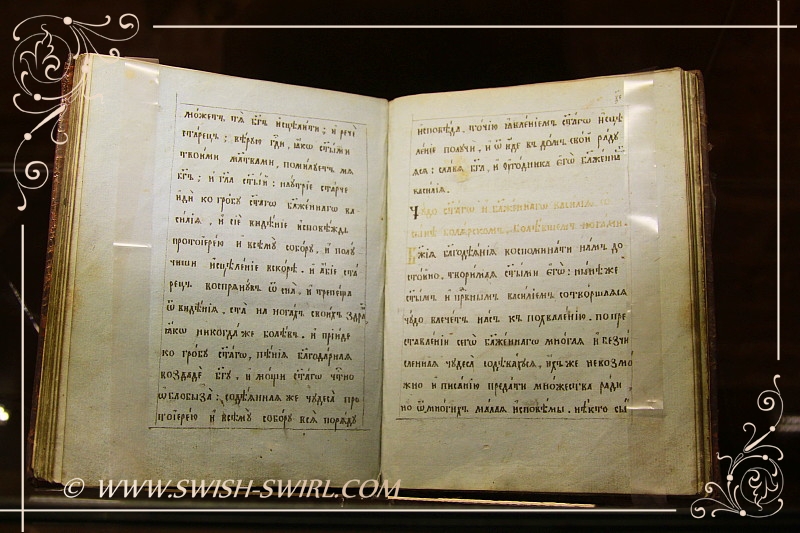 можетъ тѧ бг҃ъ и҆сцѣли́ти ; и҆ речѐ
ста́рецъ : вѣ́рую гдⷭ҇и, ꙗ҆́кѡ ст҃ы́ми
твои́ми мл҃твами, поми́луетъ мѧ
бг҃ъ ; и҆ гл҃а ст҃ы́й : наꙋ́трїе ста́рче
и҆дѝ ко гро́бꙋ ст҃а́гѡ бл҃же́ннагѡ ва-
си́лїа , и҆ сїѐ видѣ́нїе и҆сповѣ́ждь
протоїере́ю и҆ всемꙋ̀ собо́рꙋ, и҆ полꙋ́
чиши и҆сцѣле́нїе вско́рѣ . и҆ а҆́бїе ста́
рецъ воспрѧ́нꙋвъ ѿ сна̀ . и҆ тре́петѧ
ѿ видѣ́нїа . ста̀ на нога́хъ свои́хъ здра́
ꙗ҆́кѡ никогда́ же болѣ́въ . и҆ прїи́де
ко гро́бꙋ ст҃а́гѡ, пѣ́нїѧ бл҃года́рнаѧ
воздадѐ бг҃ꙋ . и҆ мо́щи ст҃а́гѡ че́стнѡ
ѡ҆блобыза̀ : содѣ́ѧннаѧ же чꙋдеса̀ про
тоїере́ю и҆ всемꙋ̀ собо́рꙋ всѧ̀ по рѧ́дꙋ
и҆сповѣ́да , то́чїю ꙗ҆вле́нїемъ ст҃а́гѡ и҆сцѣ
ле́нїе полꙋчѝ , и҆ ѿи́де въ до́мъ сво́й ра́дꙋ
ѧсѧ : сла́вѧ бг҃а , и҆ ᲂу҆го́дника є҆гѡ̀ бл҃же́нна
васи́лїа .
Чꙋ́до ст҃а́гѡ и҆ бл҃же́ннагѡ васи́лїа ѡ҆
сы́нѣ боѧ́рскомъ, болѣ́вшемъ нога́ми .
Бж҃їѧ бл҃годѣѧ́нїѧ воспомина́ти на́мъ до
сто́йно . твори́маѧ ст҃ы́ми є҆гѡ̀ : на́че же
ст҃ы́мъ и҆ првⷣнымъ васи́лїемъ сотво́ршаѧсѧ
чꙋ́до влече́тъ на́съ къ похвале́нїю . по пре
ставле́нїи сегѡ̀ бл҃же́ннагѡ мнѡ́гаѧ и҆ безчи́
сленнаѧ чꙋдеса̀ содѣ́ваꙋсѧ , и҆́хъ же невозмо́
жно и҆ писа́нїю преда́ти мно́жества ра́ди ,
но ѿ мно́гихъ ма́лаѧ и҆сповѣ́мы . нѣ́кто сы́
© WWW.SWISH-SWIRL.COM